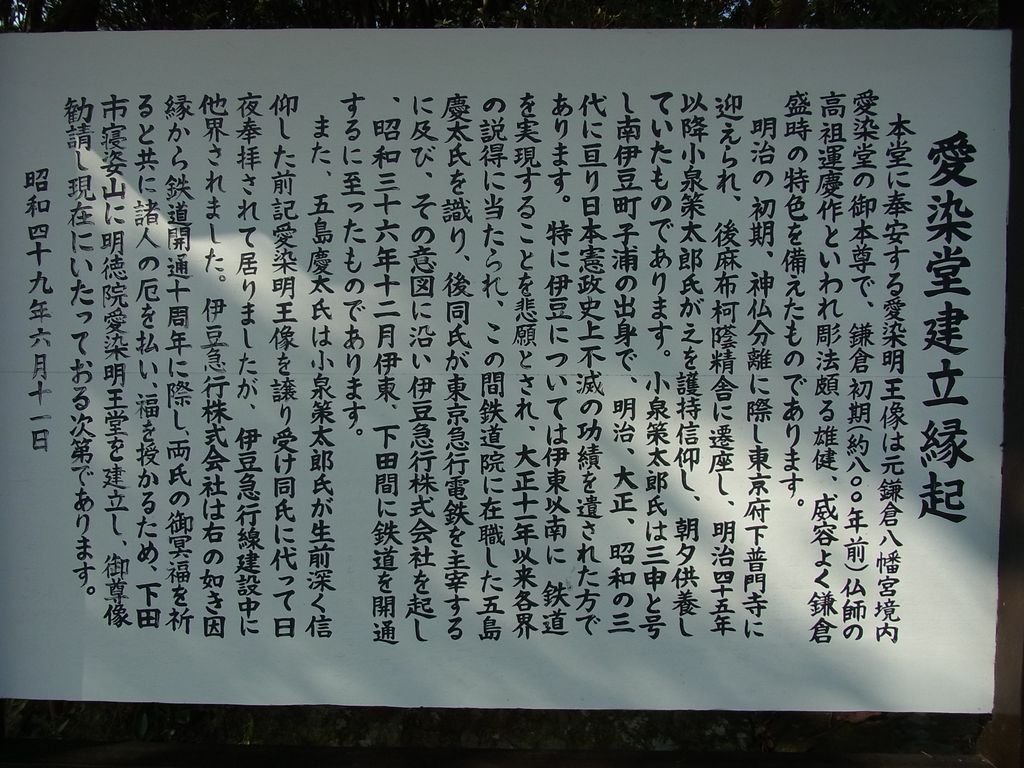 愛染堂建立縁起
本堂に奉安する愛染明王像は元鎌倉八幡宮境内
愛染堂の御本尊で、鎌倉初期(約八〇〇年前)仏師の
高祖運慶作といわれ彫法頗る雄健、威容よく鎌倉
盛時の特色を備えたものであります。
明治の初期、神仏分離に際し東京府下普門寺に
迎えられ、後麻布柯蔭精舎に遷座し、明治四十五年
以降小泉策太郎氏がえを護持信仰し、朝夕供養し
ていたものであります。小泉策太郎氏は三申と号
し南伊豆町子浦の出身で、明治、大正、昭和の三
代に亘り日本憲政史上不滅の功績を遺された方で
あります。特に伊豆については伊東以南に鉄道
を実現することを悲願とされ、大正十一年以来各界
の説得に当たられ、この間鉄道院に在職した五島
慶太氏を識り、後同氏が東京急行電鉄を主宰する
に及び、その意図に沿い伊豆急行株式会社を起し
、昭和三十六年十二月伊東、下田間に鉄道を開通
するに至ったものであります。
また、五島慶太氏は小泉策太郎氏が生前深く信
仰した前記愛染明王像を譲り受け同氏に代って日
夜奉拝されて居りましたが、伊豆急行線建設中に
他界されました。伊豆急行株式会社は右の如き因
縁から鉄道開通十周年に際し、両氏の御冥福を祈
ると共に諸人の厄を払い、福を授かるため、下田
市寝姿山に明徳院愛染明王堂を建立し、御尊像
勧請し現在にいたっておる次第であります。
昭和四十九年六月十一日